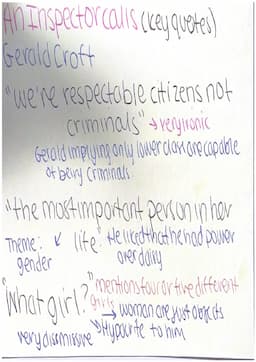 An Inspector calls (key quotes)
Gerald Croft
"we're respectable citizens not
criminals" → very ironic
Gerald implying only lower class are capable
of being criminals.
"the most important person in her
life" He liked that he had power
over daisy
Theme: ↙
gender
"What girl?" mentions four or five different
girls → woman are just objects
to him
very dismissive → Hypocrite